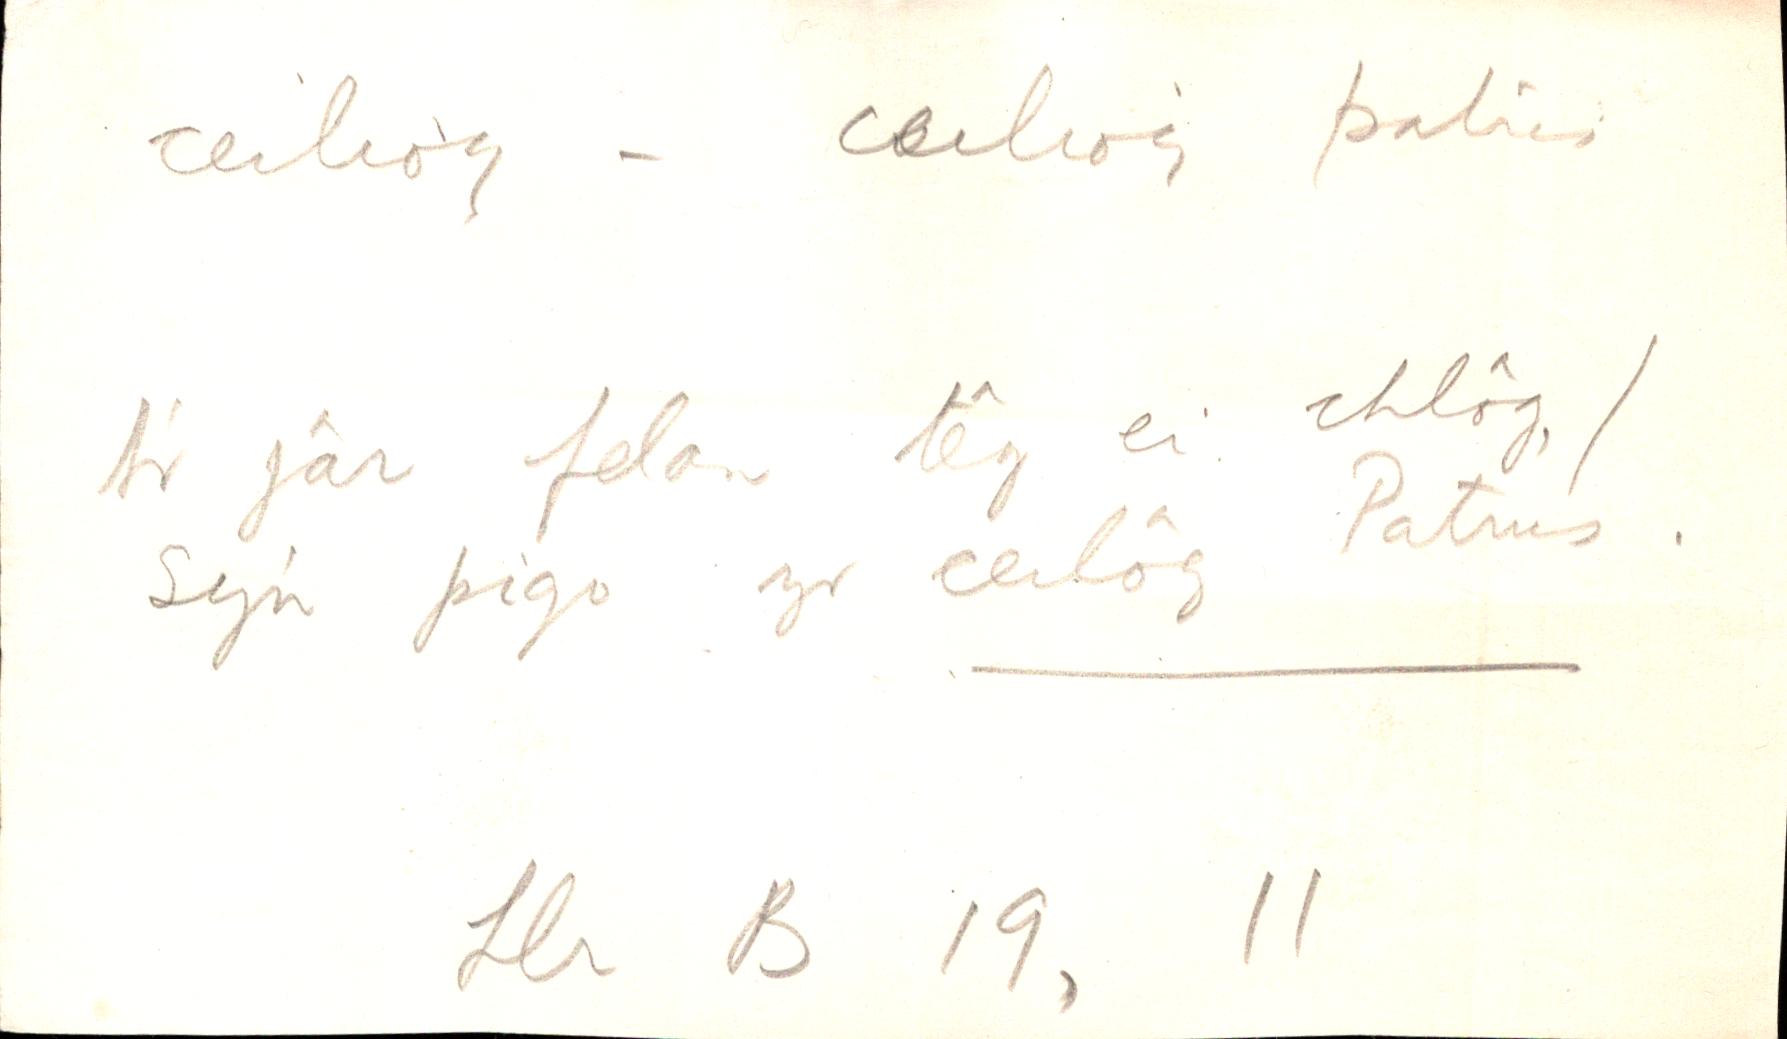 ceiliog - ceiliog patris
A'r jâr felan têg ei chlôg, /
Sy'n pigo yr ceilôg Patrus.
Llr B 19, 11